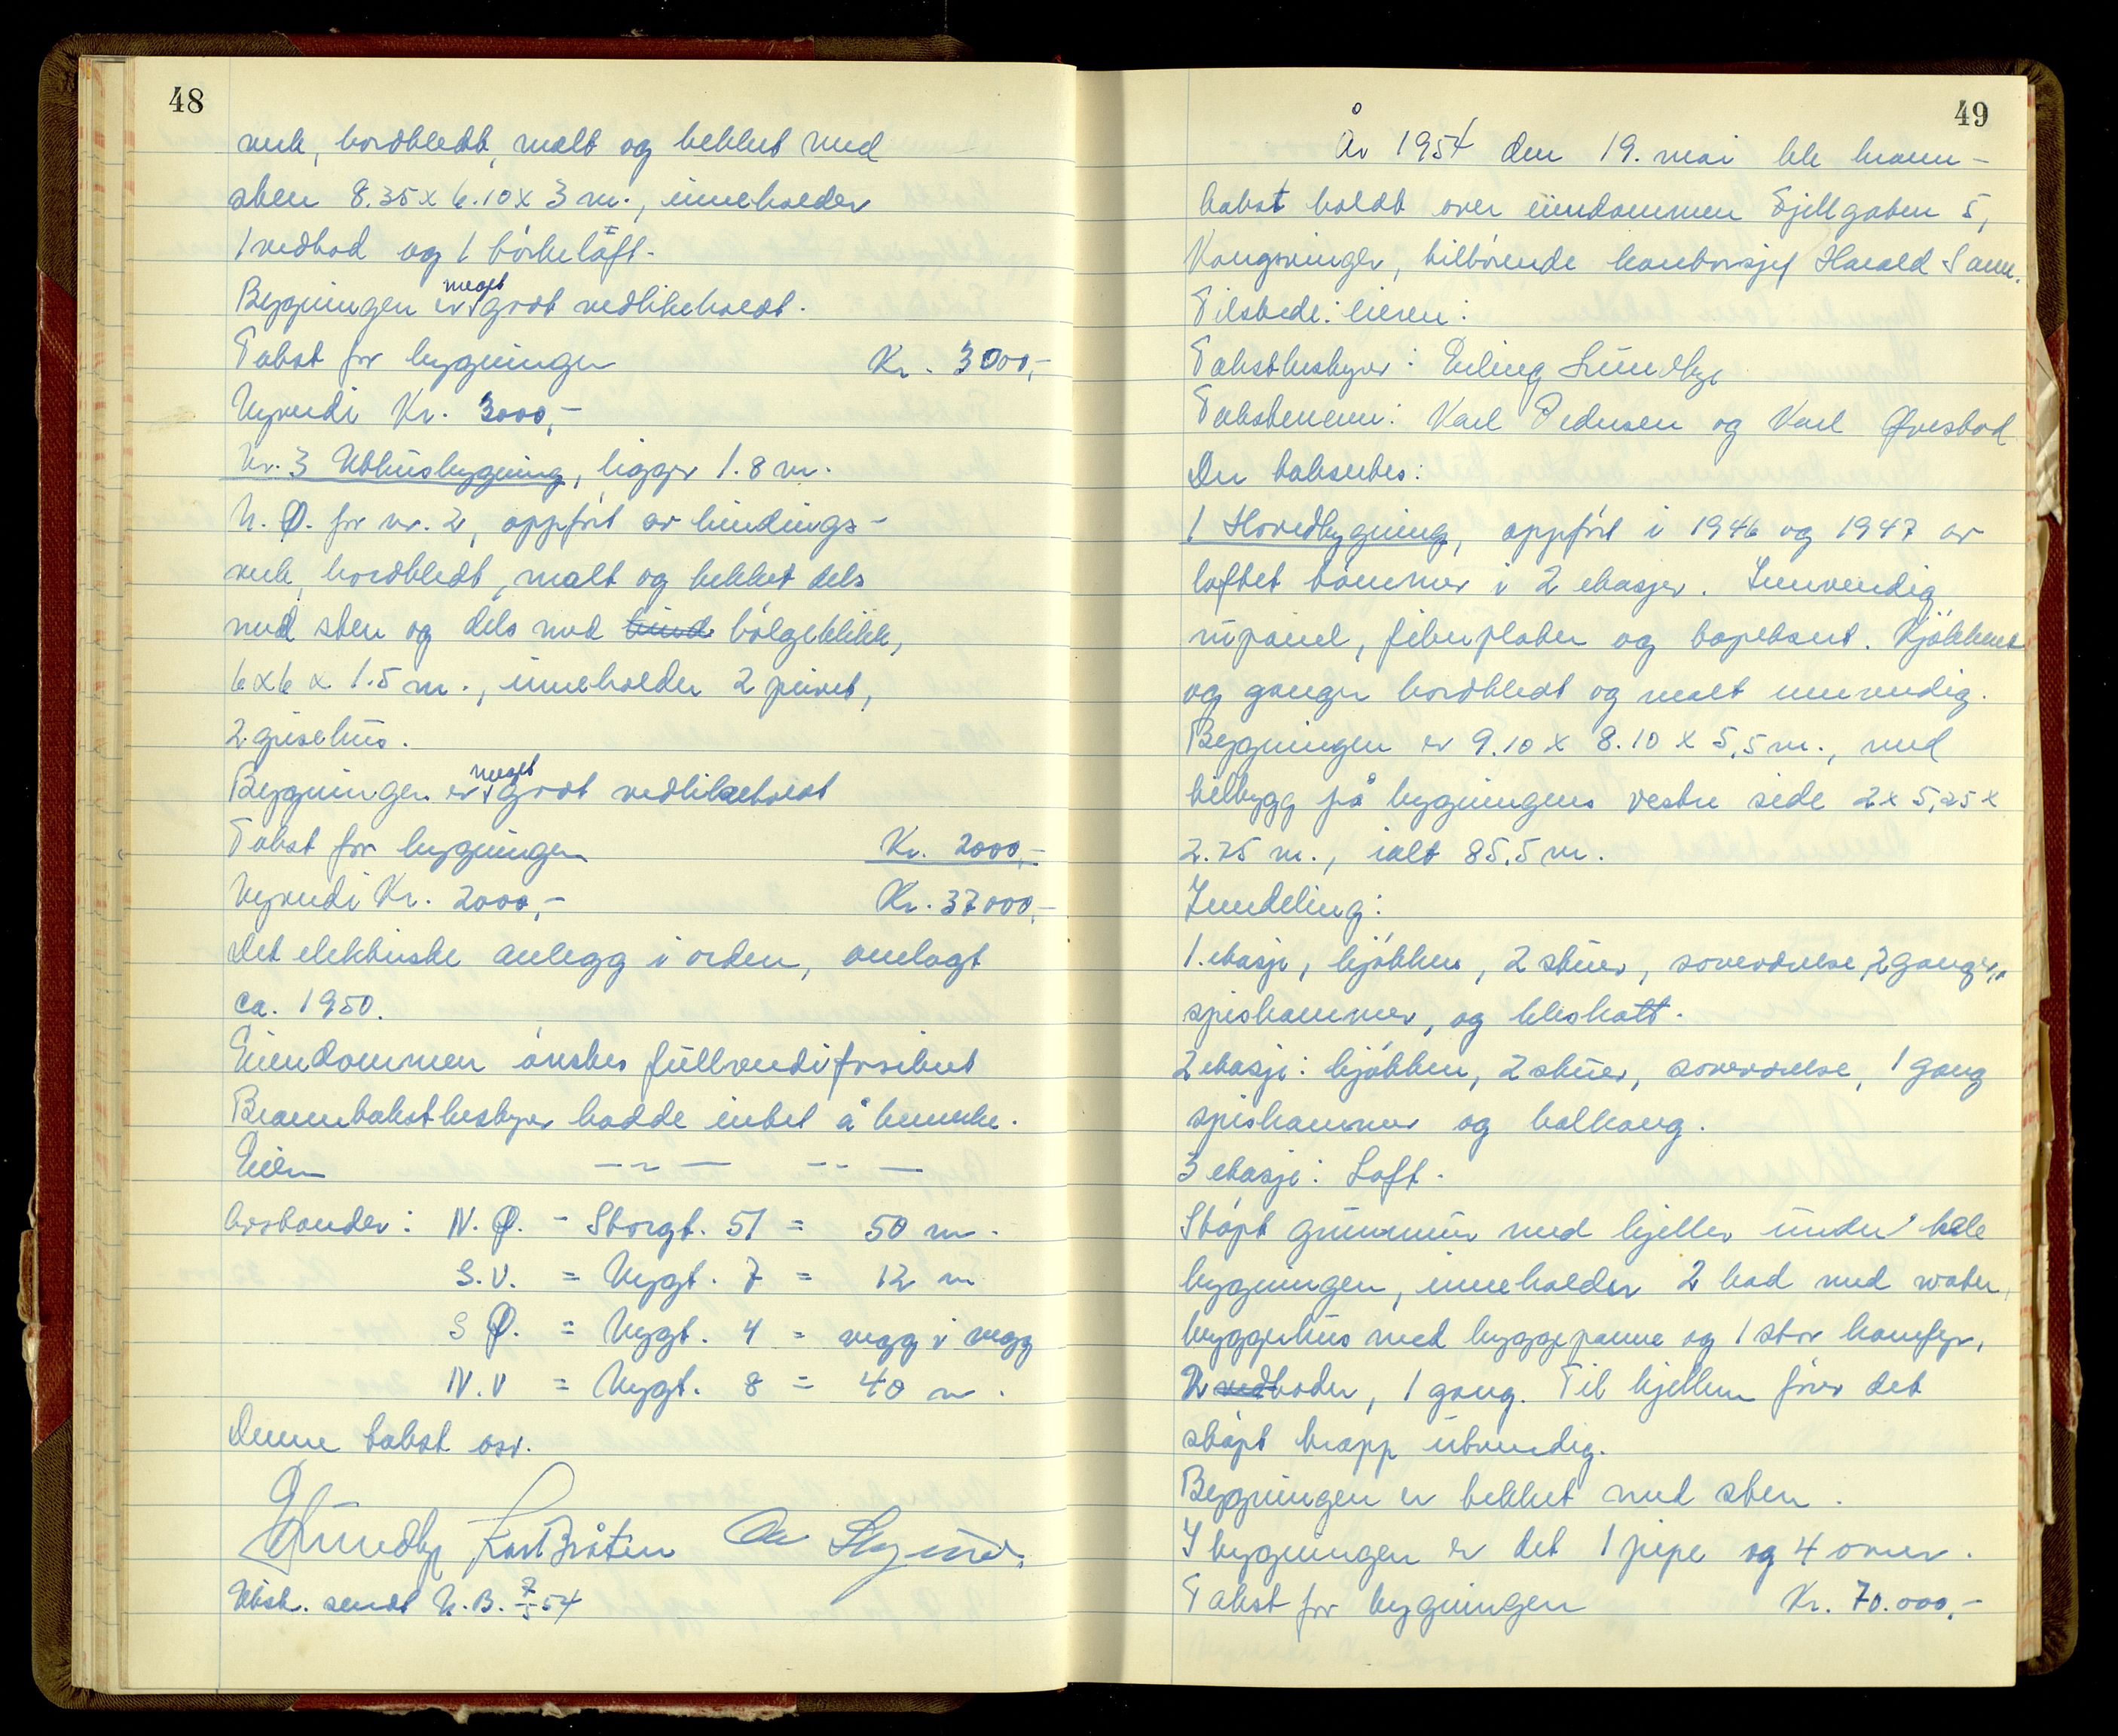 48
verk, bordkledt, malt og tekket med
sten 8.35 x 6.10 x 3 m., inneholder
1 vedbod og 1 törkeloft.
Bygningen er meget godt vedlikeholdt.
Takst for bygningen Kr. 3000,-
Nyverdi Kr. 3000,-
Nr. 3 Uthusbygning, ligger 1.8 m.
N. Ø. for nr. 2, oppfört av bindings-
verk, bordkledt, malt og tekket dels
med sten og dels med bölgeblikk,
6x6 x 1.5 m., inneholder 2 privet,
2 grisehus.
Bygningen er meget godt vedlikeholdt
Takst for bygningen Kr. 2000,-
Nyverdi Kr. 2000,- Kr. 37000,-
Det elektriske anlegg i orden, omlagt
ca. 1950.
Eiendommen önskes fullverdiforsikret
Branntakstbestyrer hadde intet å bemerke.
Eieren —~— -- —
Avstander: N.Ø. - Storgt. 51 = 50 m.
S.V. = Nygt. 7 = 12 m
S Ø. = Nygt. 4 = vegg i vegg
N.V = Nygt. 8 = 40 m.
Denne takst osv.
E Lundby Karl Bråten
Utskr. sendt N.B. 7/5 54
49
År 1954 den 19. mai ble brann-
takst holdt over eiendommen Fjellgaten 5,
Kongsvinger, tilhörende kontorsjef Harald
Tilstede: eieren:
Takstbestyrer: Erling Lundby
Takstmenn: Karl Pedersen og Karl Øvestad
Der taksertes:
1 Hovedbygning, oppfört i 1946 og 1947 av
laftet tömmer i 2 etasjer. Innvendig
rupanel, fiberplater og tapetsert. Kjökkenet
og ganger bordkledt og malt innvendig.
Bygningen er 9.10 x 8.10 x 5,5 m., med
tilbygg på bygningens vestre side 2x 5,25 x
2.75 m., ialt 85.5 m.
Inndeling:
1.etasje, kjökken, 2 stuer, soveværelse, 2 ganger,
spiskammer, og kleskott.
2 etasje: kjökken, 2 stuer, soveværelse, 1 gang
spiskammer og balkong.
3 etasje: Loft.
Stöpt grunnmur med kjeller under hele
bygningen, inneholder 2 bad med water,
bryggerhus med bryggepanne og 1 stor komfyr,
2 vedboder, 1 gang. Til kjelleren förer det
stöpt trapp utvendig.
Bygningen er tekket med sten.
I bygningen er det 1 pipe og 4 ovner.
Takst for bygningen Kr. 70.000,-